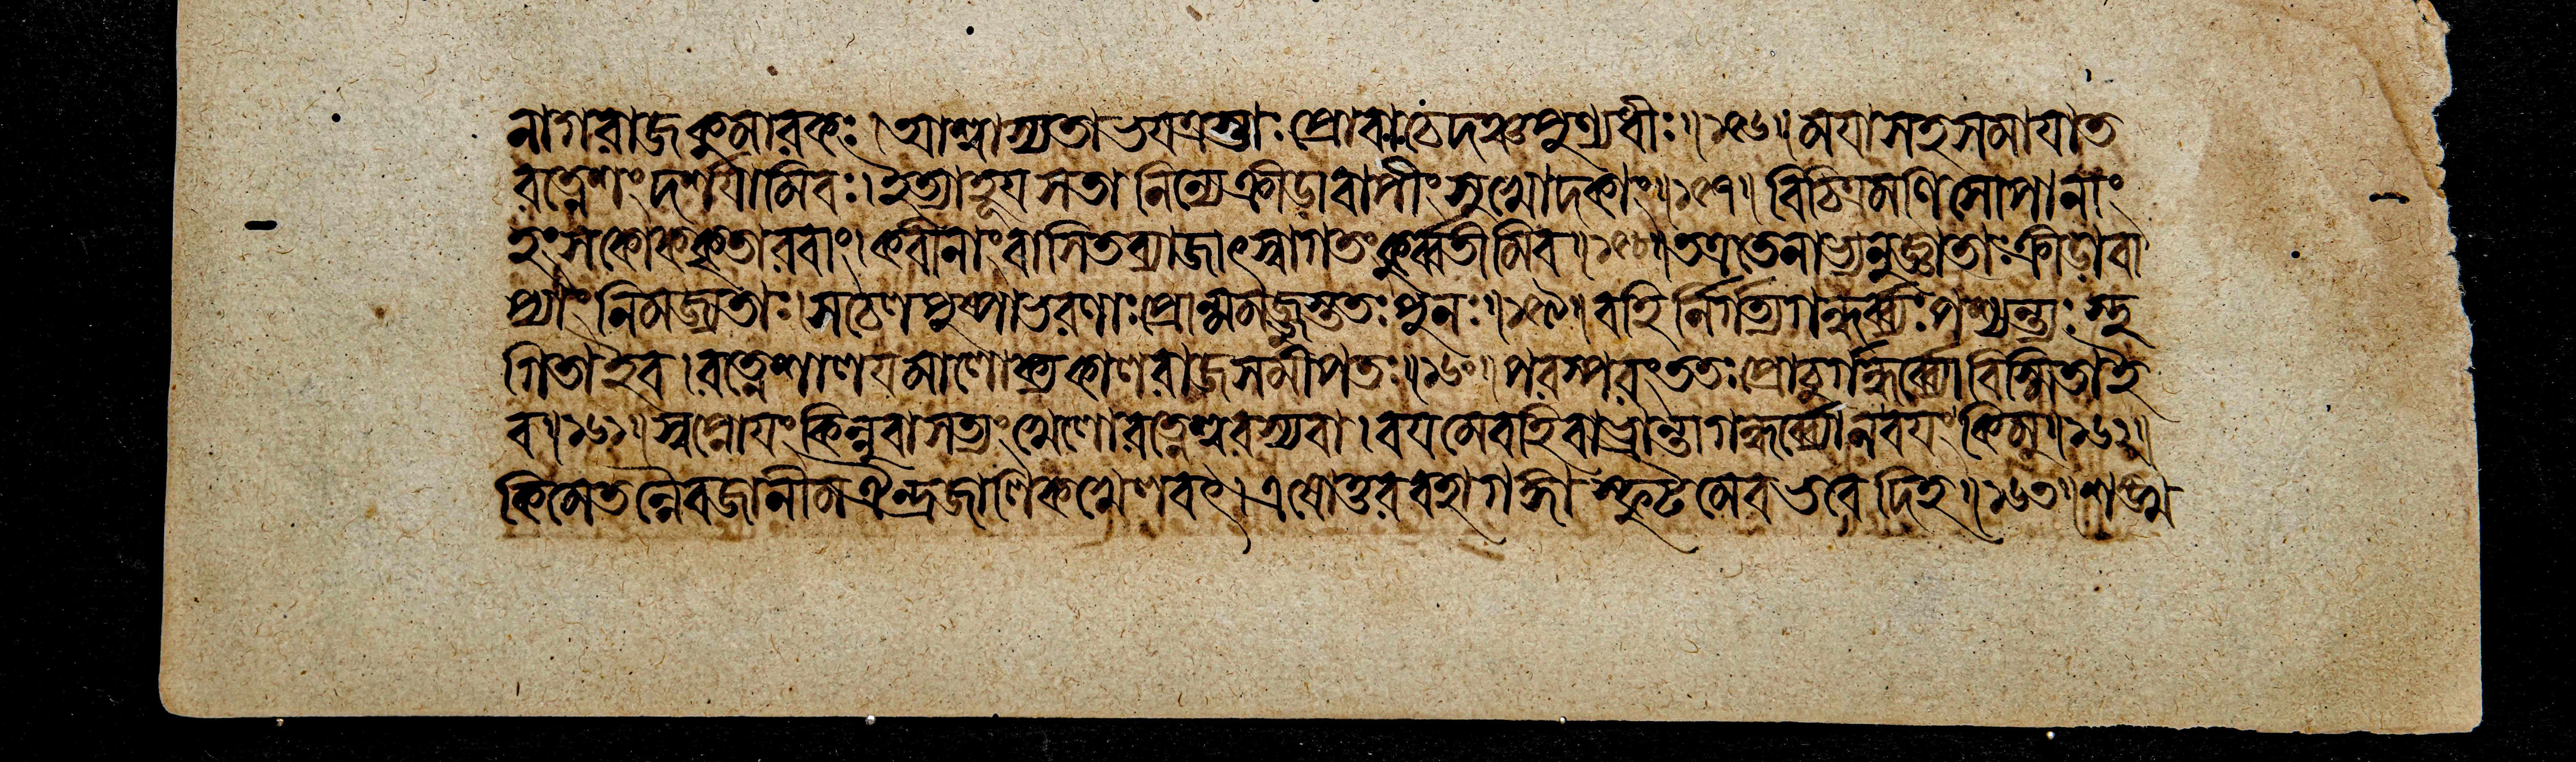 নাগরাজকুমারকঃ।আশ্বাস্যতাভযত্রস্তাঃপ্রোবাচেদঞ্চপুণ্যধীঃ॥১৫৬॥মযাসহসমাযাত
রত্নেশংদর্শযামিবঃ।ইত্যাহূযসতানিন্যেক্রীডাবাপীংসুখোদকাং॥১৫৭॥বিচিত্রমণিসোপানাং
হংসকোককৃতারবাং।কবীনাংবাসিতব্যাজাৎস্বাগতংকুর্ব্বতীমিব॥১৫৮॥তত্রতেনাভ্যনুজ্ঞাতাঃক্রীডাবা
প্যাংনিমজ্যতাঃ।সচেলপুষ্পাভরণাঃপ্রোন্মমজ্জুস্ততঃপুনঃ॥১৫৯॥বহির্নির্গত্যগন্ধর্ব্ব্যঃপশ্যন্ত্যঃস্থ
গিতাইব।রত্নেশালযমালোক্যকালরাজসমীপতঃ॥১৬০॥পরস্পরংততঃপ্রোচুর্গন্ধর্ব্ব্যোবিস্মিতাই
ব॥১৬১॥স্বপ্নোযংকিন্নুবাসত্যংখেলোরত্নেশ্বরস্যবা।বযমেবহিবাভ্রান্তাগন্ধর্ব্ব্যোনবযংকিমু॥১৬২॥
কিমেতন্নৈবজানীমঐন্দ্রজালিকখেলবৎ।এষোত্তরবহাগঙ্গাস্ফুটমেবভবেদিহ॥১৬৩॥শঙ্খ